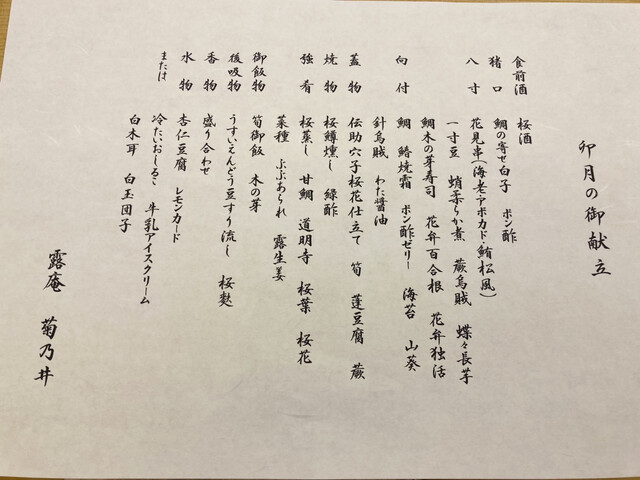 卯月の御献立
食前酒 桜酒
猪口 鯛の寄せ白子 ポン酢
八寸 花見串(海老アボカド・鮪松風)
一寸豆 蛸柔らか煮 蕨烏賊 蝶々長芋
鯛木の芽寿司 花弁百合根 花弁独活
向付 鯛 鰆焼霜 ポン酢ゼリー 海苔 山葵
針烏賊 わた醤油
蓋物 伝助穴子桜花仕立て 筍 蓬豆腐 蕨
焼物 桜鱒燻し 緑酢
強肴 桜蒸し 甘鯛 道明寺 桜葉 桜花
菜種 ぶぶあられ 露生姜
御飯物 筍御飯 木の芽
後吸物 うすいえんどう豆すり流し 桜麩
香物 盛り合わせ
水物 杏仁豆腐 レモンカード
または 冷たいおしるこ 牛乳アイスクリーム
白木耳 白玉団子
露庵 菊乃井